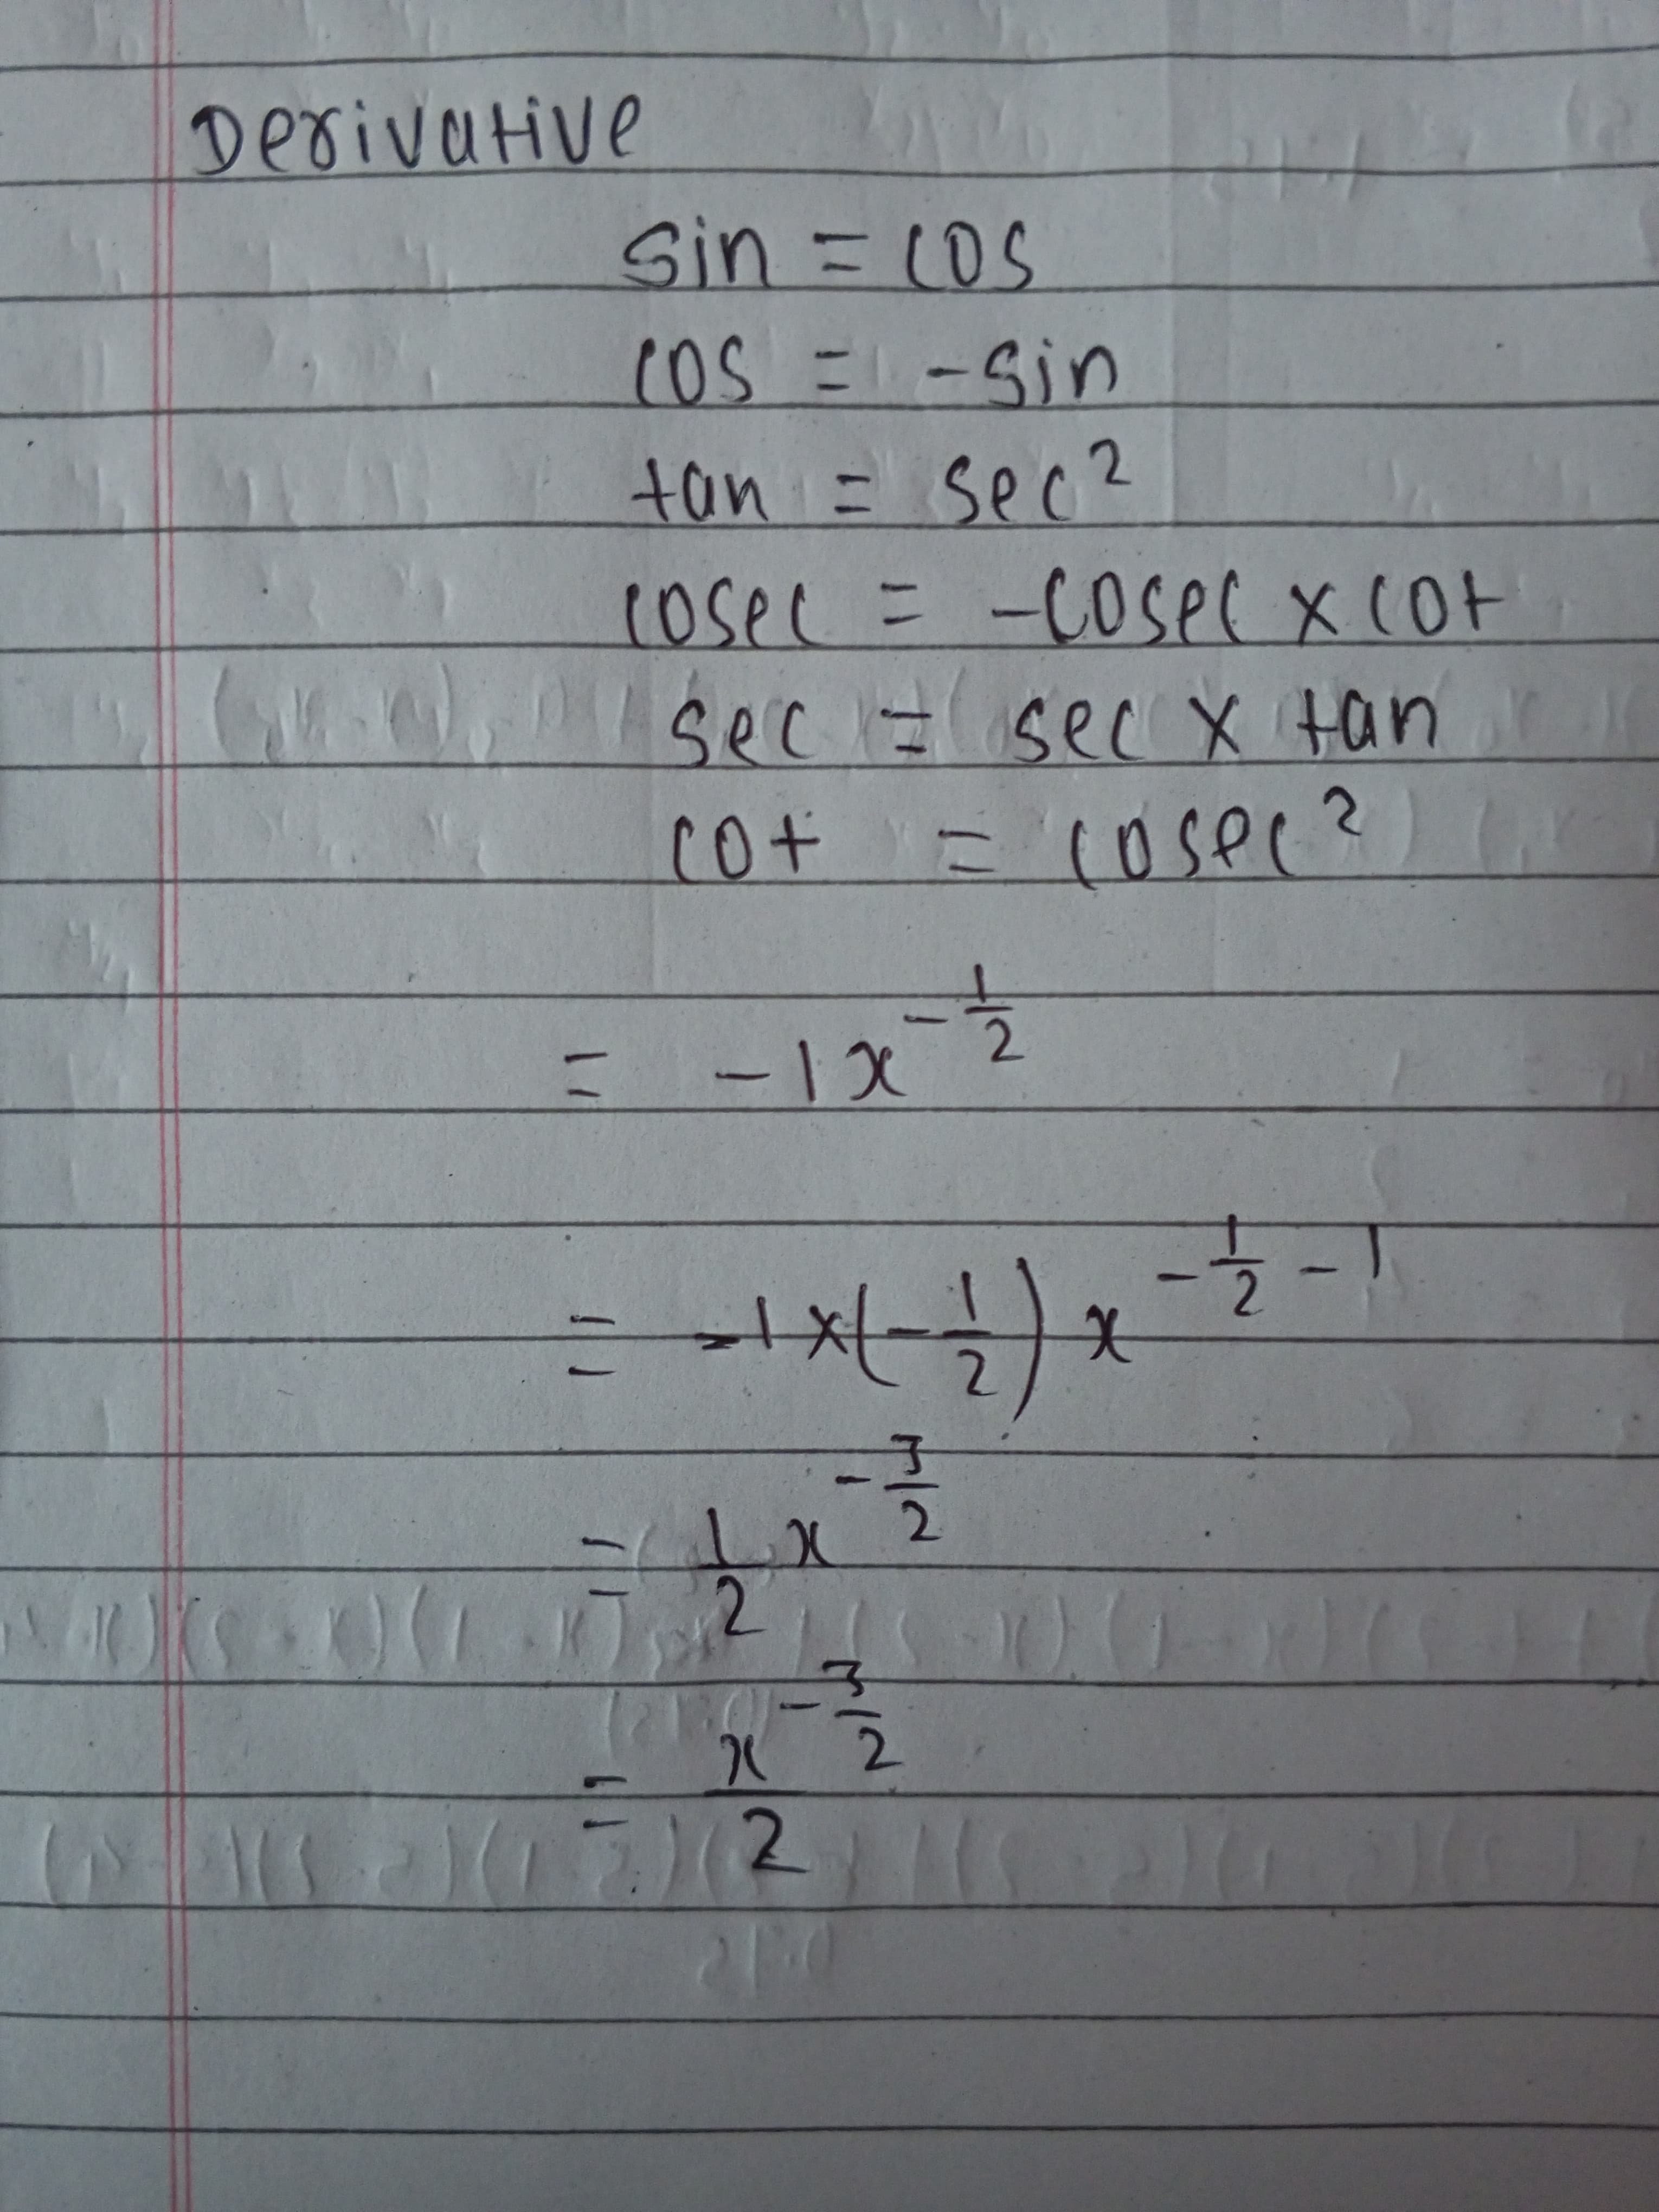 Derivative
sin = cos
cos = -sin
tan = sec²
cosec = -cosec x cot
sec = sec x tan
cot = cosec²
= -1x^{-1/2}
= -1 x (-1/2) x^{-1/2 - 1}
= 1/2 x^{-3/2}
= x^{-3/2} / 2